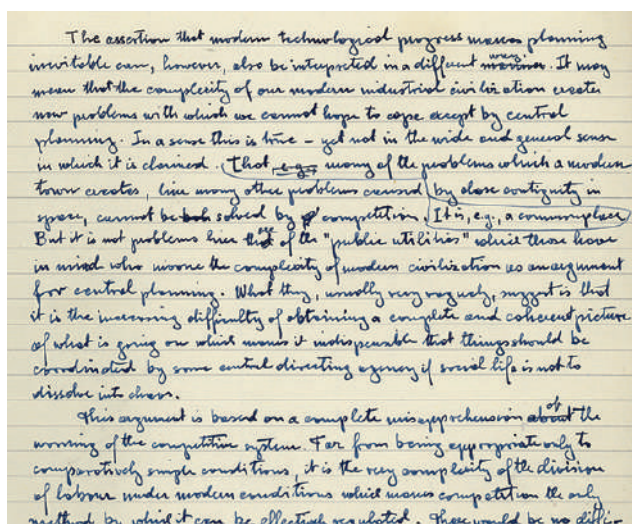 The assertion that modern technological progress makes planning
inevitable can, however, also be interpreted in a different way manner. It may
mean that the complexity of our modern industrial civilization creates
new problems with which we cannot hope to cope except by central
planning. In a sense this is true – yet not in the wide and general sense
in which it is claimed. That, e.g., many of the problems which a modern
town creates, like many other problems caused by close contiguity in
space, cannot be solved by competition. It is, e.g., a commonplace
But it is not problems like of the "public utilities" which those have
in mind who invoke the complexity of modern civilization as an argument
for central planning. What they, usually very vaguely, suggest is that
it is the increasing difficulty of obtaining a complete and coherent picture
of what is going on which makes it indispensable that things should be
coordinated by some central directing agency if social life is not to
dissolve into chaos.
This argument is based on a complete misapprehension about of the
working of the competitive system. Far from being appropriate only to
comparatively simple conditions, it is the very complexity of the division
of labour under modern conditions which makes competition the only
method by which it can be effectively regulated. There would be no diffi-